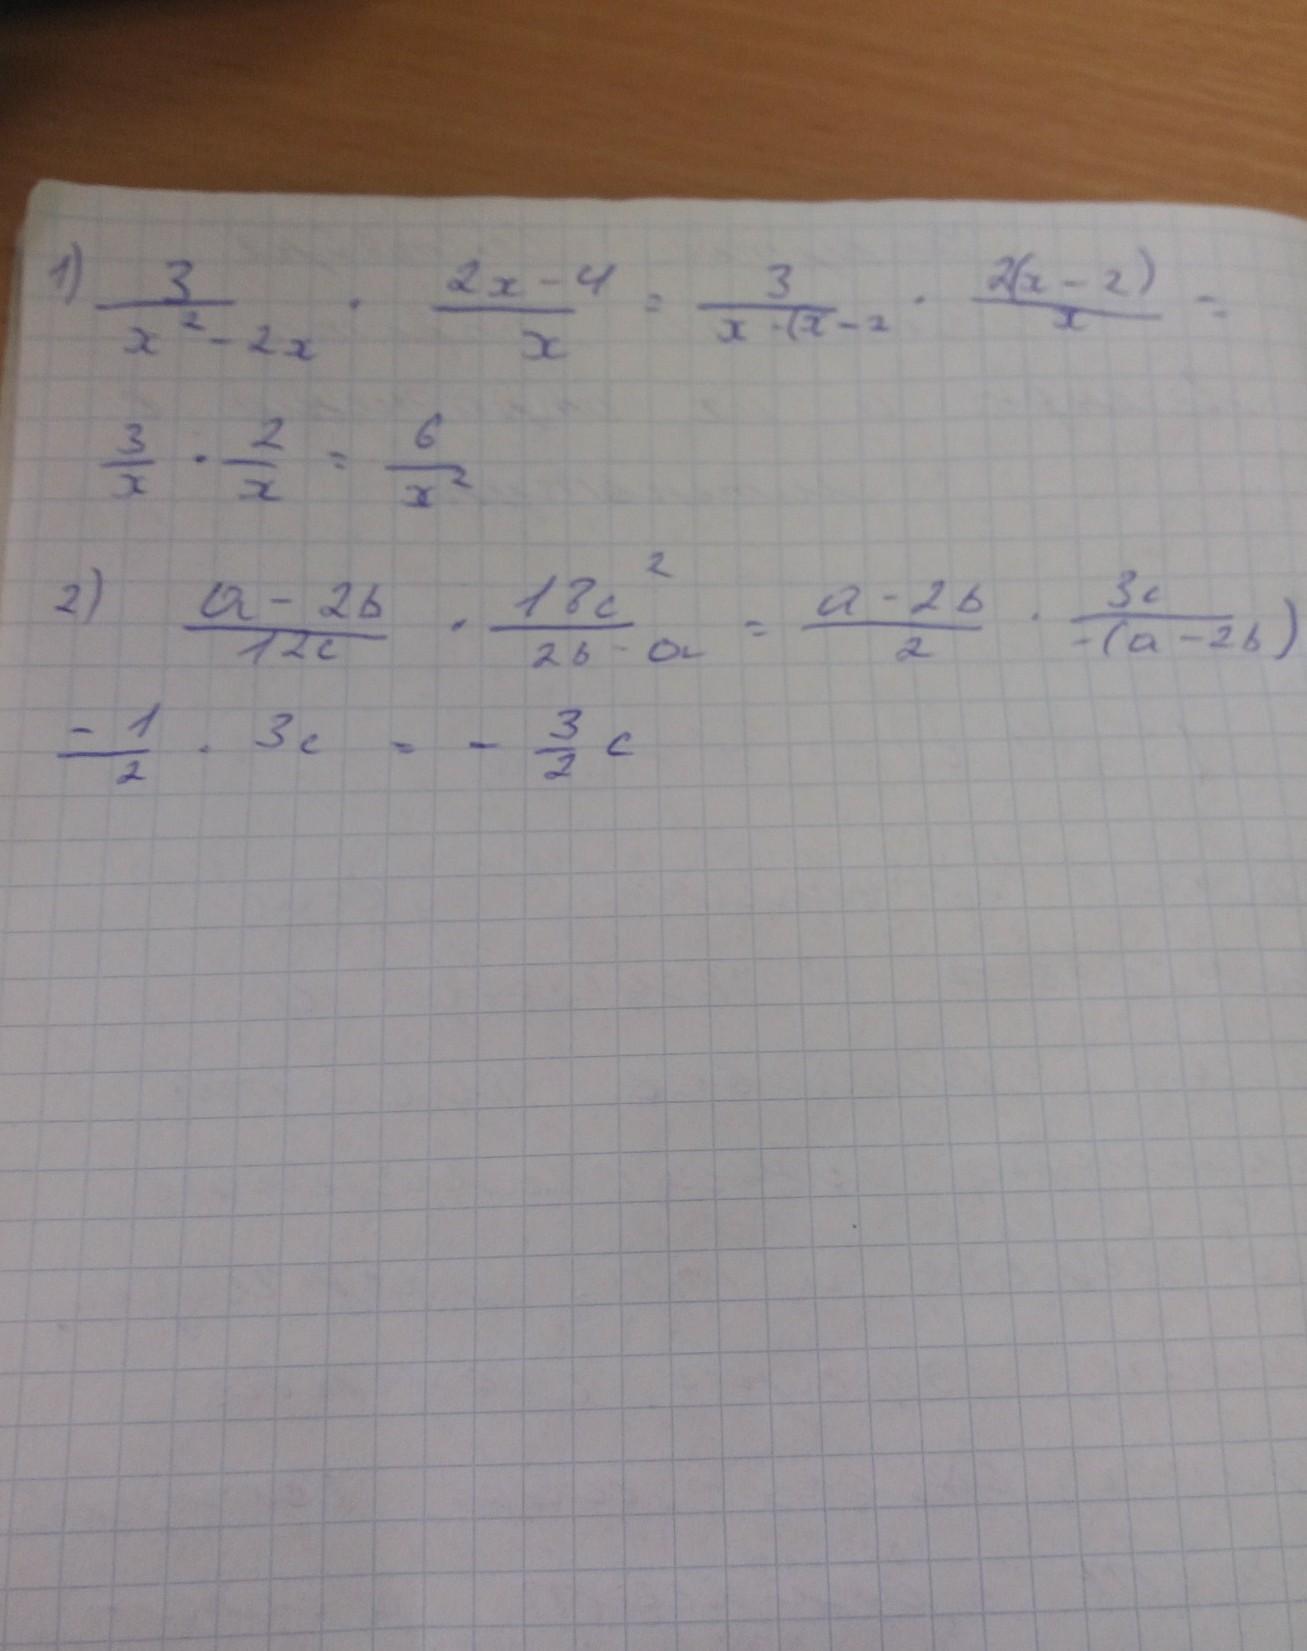 1) 3/(x²-2x) · (2x-4)/x = 3/(x·(x-2) · 2(x-2)/x =
3/x · 2/x = 6/x²
2) (a-2b)/12c · 18c²/(2b-a) = (a-2b)/2 · 3c/(-(a-2b))
-1/2 · 3c = - 3/2 c